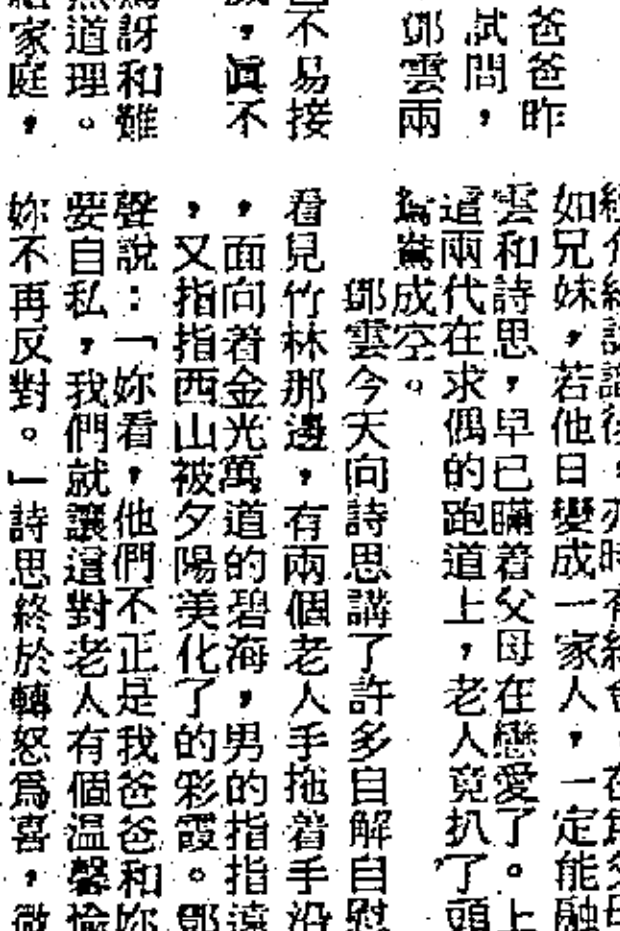 爸爸昨
試問，
鄧雲兩
不易接
，眞不
訝和難
道理。
家庭，
如兄妹，若他日變成一家人，一定能融
雲和詩思，早已瞞着父母在戀愛了。上
這兩代在求偶的跑道上，老人竟扒了頭
鴛鴦成空。
鄧雲今天向詩思講了許多自解自慰
看見竹林那邊，有兩個老人手拖着手沿
，面向着金光萬道的碧海，男的指指遠
，又指指西山被夕陽美化了的彩霞。鄧
聲說：「妳看，他們不正是我爸爸和妳
要自私，我們就讓這對老人有個温馨愉
妳不再反對。」詩思終於轉怒爲喜，微